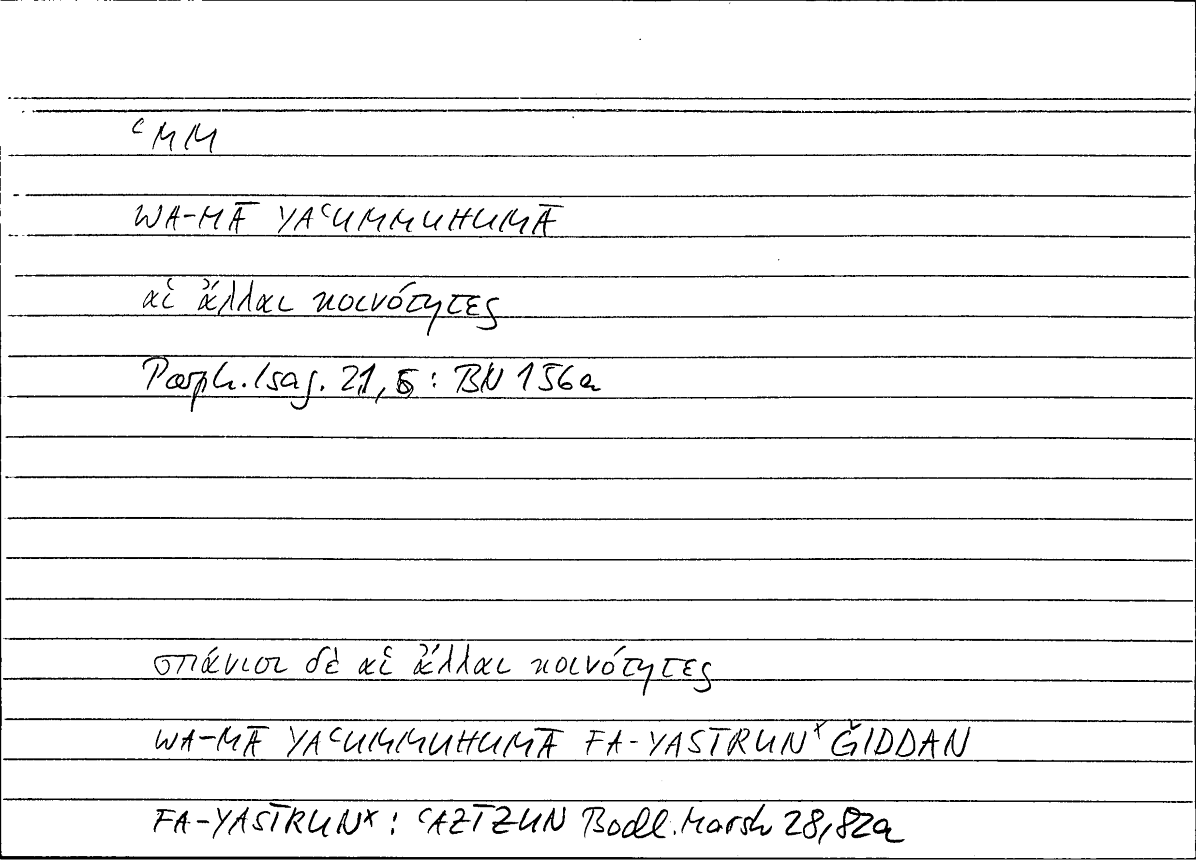 ʿMM
WA-MĀ YAʿUMMUHUMĀ
αἱ ἄλλαι κοινότητες
Porph. Isag. 21,5: BN 156a
σπάνιοι δὲ αἱ ἄλλαι κοινότητες
WA-MĀ YAʿUMMUHUMĀ FA-YASĪRUNˣ ǦIDDAN
FA-YASĪRUNˣ: ʿAZĪZUN Bodl. Marsh 28,82a